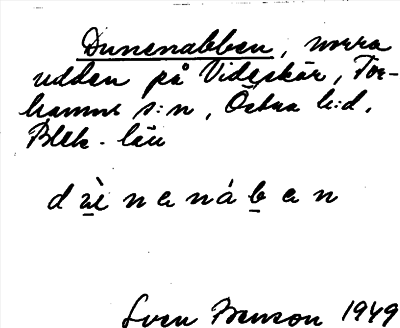 Dunenabben, norra
udden på Videskär, Tor-
hamns s:n, Östra h:d,
Blek. län
d ʉ̀ n a n á b e n
Sven Benson 1949